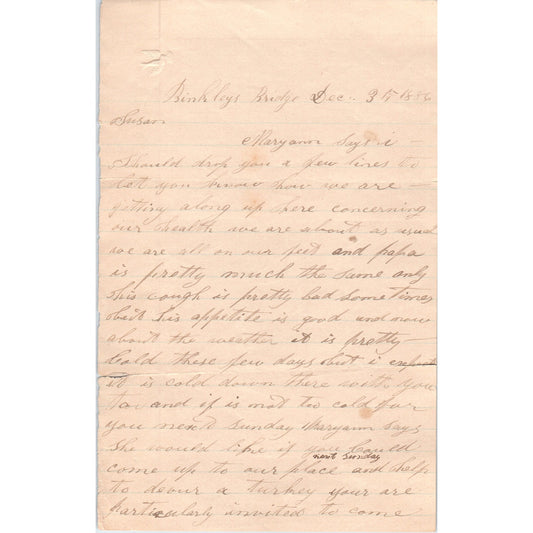 Binkleys Bridge Dec. 3th 1886
Susan
Maryann Says i
Should drop you a few lines to
let you know how we are
getting along up here concerning
our health we are about as usual
we are all on our feet and papa
is pretty much the same only
his cough is pretty bad Sometimes
but his appetite is good and now
about the weather it is pretty
Cold these few days but i expect
it is cold down there with you
too and if is not to cold for
you next Sunday Maryann Says
She would like if you Could
next Sunday
come up to our place and help
to devour a turkey your are
particularly invited to come